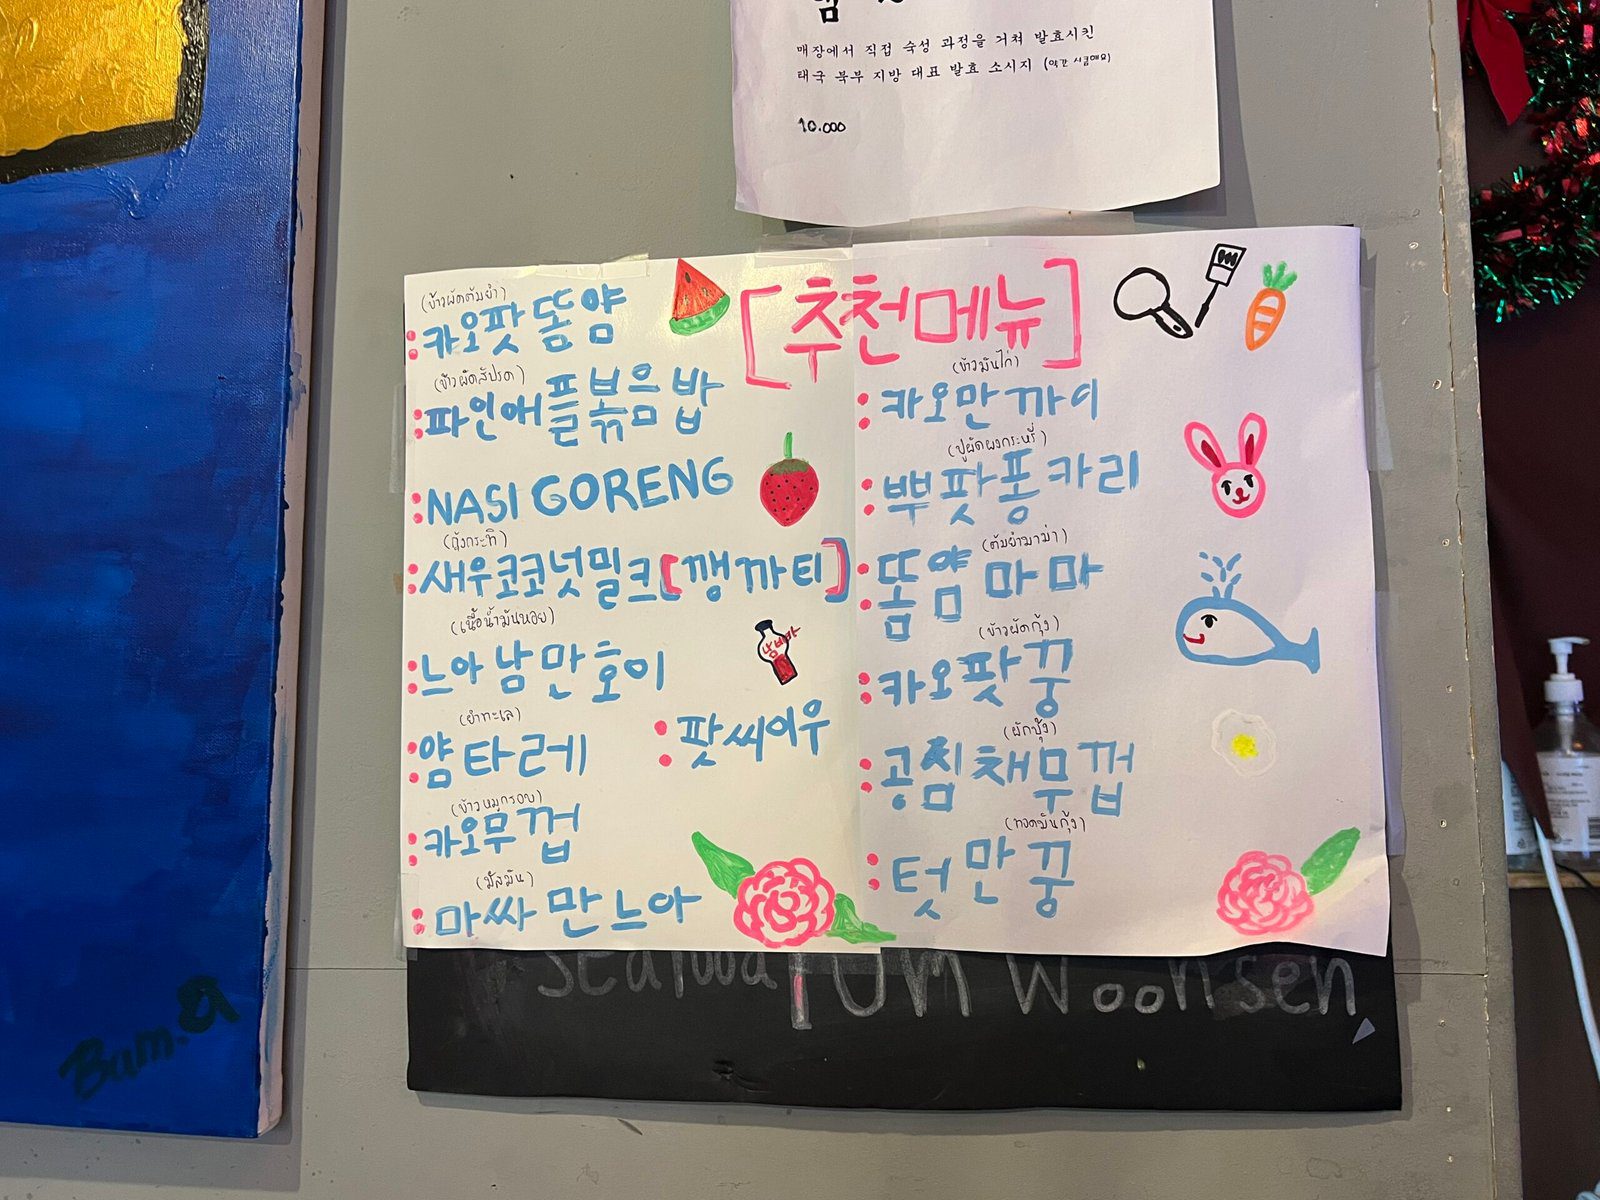 매장에서 직접 숙성 과정을 거쳐 발효시킨
태국 북부 지방 대표 발효 소시지 (약간 시큼해요)
10.000
[추천메뉴]
(ข้าวผัดต้มยำ)
카오팟 똠얌
(ข้าวผัดสัปรด)
파인애플볶음밥
NASI GORENG
(กุ้งกะทิ)
새우코코넛밀크[깽까티]
(เนื้อน้ำมันหอย)
느아 남만호이
남쁘라
(ยำทะเล)
얌타레
팟씨이우
(ข้าวหมูกรอบ)
카오무껍
(มัสมั่น)
마싸만느아
(ข้าวมันไก่)
카오만까이
(ปูผัดผงกะหรี่)
뿌팟퐁카리
(ต้มยำมาม่า)
똠얌마마
(ข้าวผัดกุ้ง)
카오팟꿍
(ผักบุ้ง)
공심채무껍
(ทอดมันกุ้ง)
텃만꿍
Woonsen
Bam.a